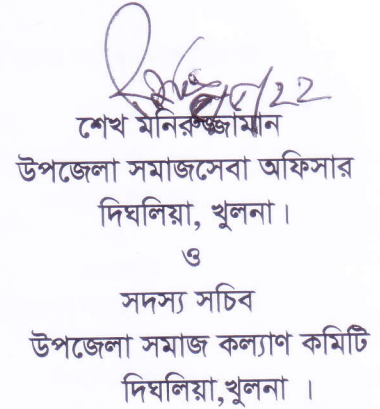 শেখ মনিরুজ্জামান
উপজেলা সমাজসেবা অফিসার
দিঘলিয়া, খুলনা।
ও
সদস্য সচিব
উপজেলা সমাজ কল্যাণ কমিটি
দিঘলিয়া,খুলনা ।